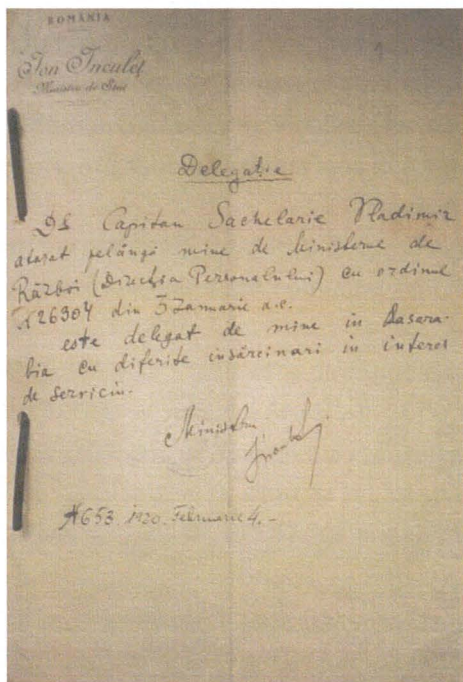 ROMÂNIA
Ion Inculeț
Ministru de Stat
Delegație
Dl Capitan Sachelarie Vladimir
atașat pelângă mine de Ministerul de
Război (Direcția Personalului) cu ordinul
№ 26304 din 3 Ianuarie a.c.
este delegat de mine în Basara-
bia cu diferite însărcinari în interes
de serviciu.
Ministru
№ 653. 1920. Februarie 4. -